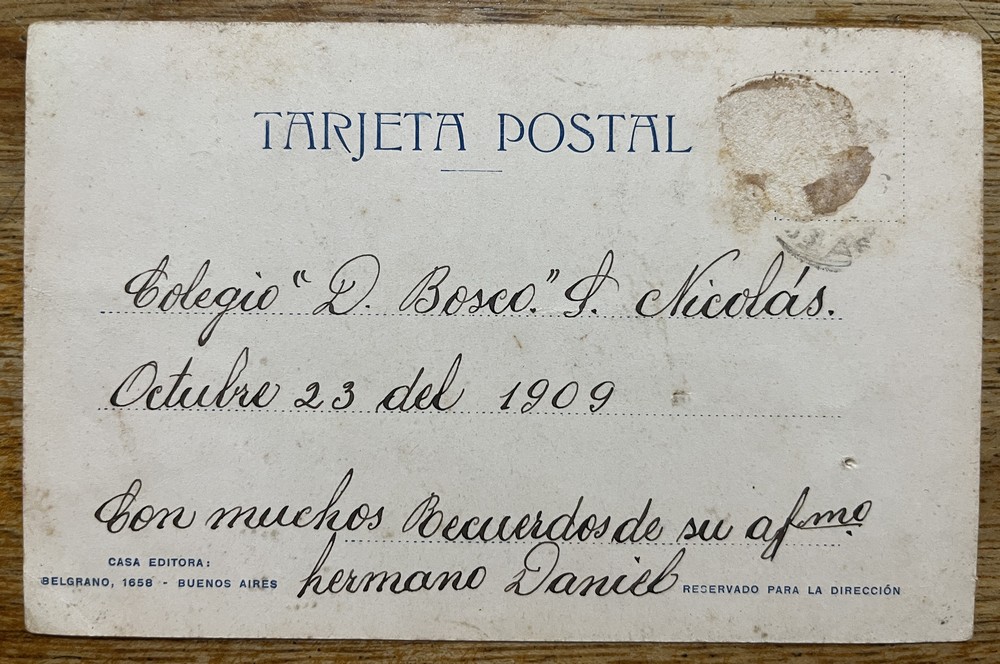 TARJETA POSTAL
Colegio "D. Bosco." S. Nicolás.
Octubre 23 del 1909
Con muchos Recuerdos de su afmo
hermano Daniel
CASA EDITORA:
BELGRANO, 1658 - BUENOS AIRES
RESERVADO PARA LA DIRECCIÓN